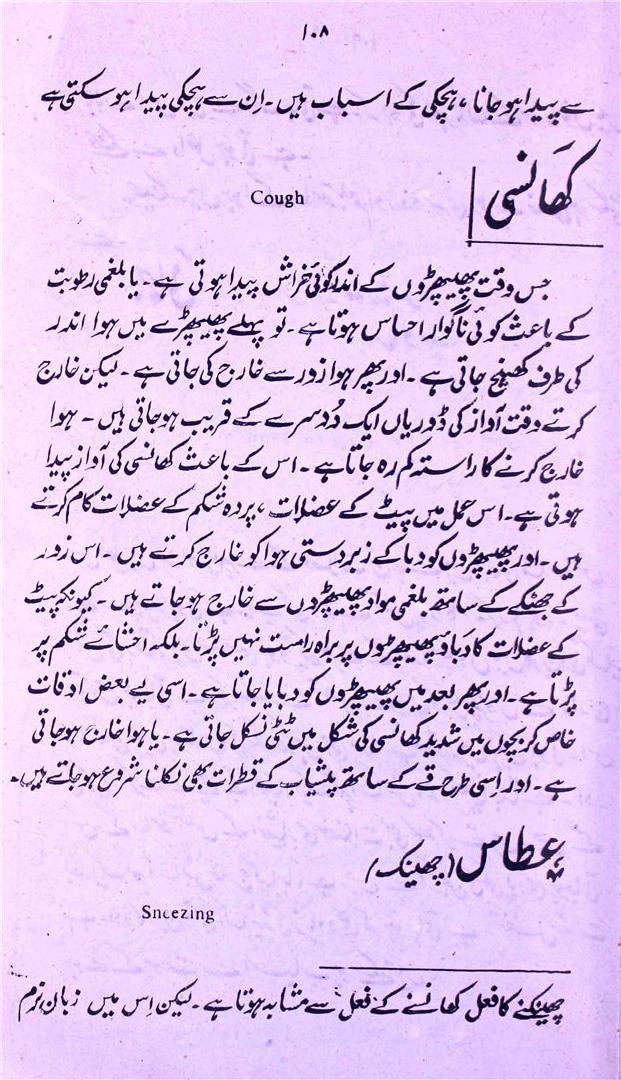 ۱۰۸
سے پیدا ہو جانا، ہچکی کے اسباب ہیں۔ اِن سے ہچکی پیدا ہو سکتی ہے
کھانسی
Cough
جس وقت پھیپھڑوں کے اندر کوئی خراش پیدا ہوتی ہے۔ یا بلغمی رطوبت
کے باعث کوئی ناگوار احساس ہوتا ہے۔ تو پہلے پھیپھڑے میں ہوا اندر
کی طرف کھینچ جاتی ہے۔ اور پھر ہوا زور سے خارج کی جاتی ہے۔ لیکن خارج
کرتے وقت آواز کی ڈوریاں ایک دُوسرے کے قریب ہو جاتی ہیں۔ ہوا
خارج کرنے کا راستہ کم رہ جاتا ہے۔ اس کے باعث کھانسی کی آواز پیدا
ہوتی ہے۔ اس عمل میں پیٹ کے عضلات، پردہ شکم کے عضلات کام کرتے
ہیں۔ اور پھیپھڑوں کو دبا کے زبردستی ہوا کو خارج کرتے ہیں۔ اس زور
کے جھٹکے کے ساتھ بلغمی مواد پھیپھڑوں سے خارج ہو جاتے ہیں۔ کیونکہ پیٹ
کے عضلات کا دَباؤ پھیپھڑوں پر براہ راست نہیں پڑتا۔ بلکہ احشائے شکم پر
پڑتا ہے۔ اور پھر بعد میں پھیپھڑوں کو دبایا جاتا ہے۔ اسی لیے بعض اوقات
خاص کر بچوں میں شدید کھانسی کی شکل میں ٹٹی نکل جاتی ہے۔ یا ہوا خارج ہو جاتی
ہے۔ اور اِسی طرح قے کے ساتھ پیشاب کے قطرات بھی نکلنا شروع ہو جاتے ہیں۔
عطاس (چھینک)
Sneezing
چھینکنے کا فعل کھانسنے کے فعل سے مشابہ ہوتا ہے۔ لیکن اِس میں زبان، نرم